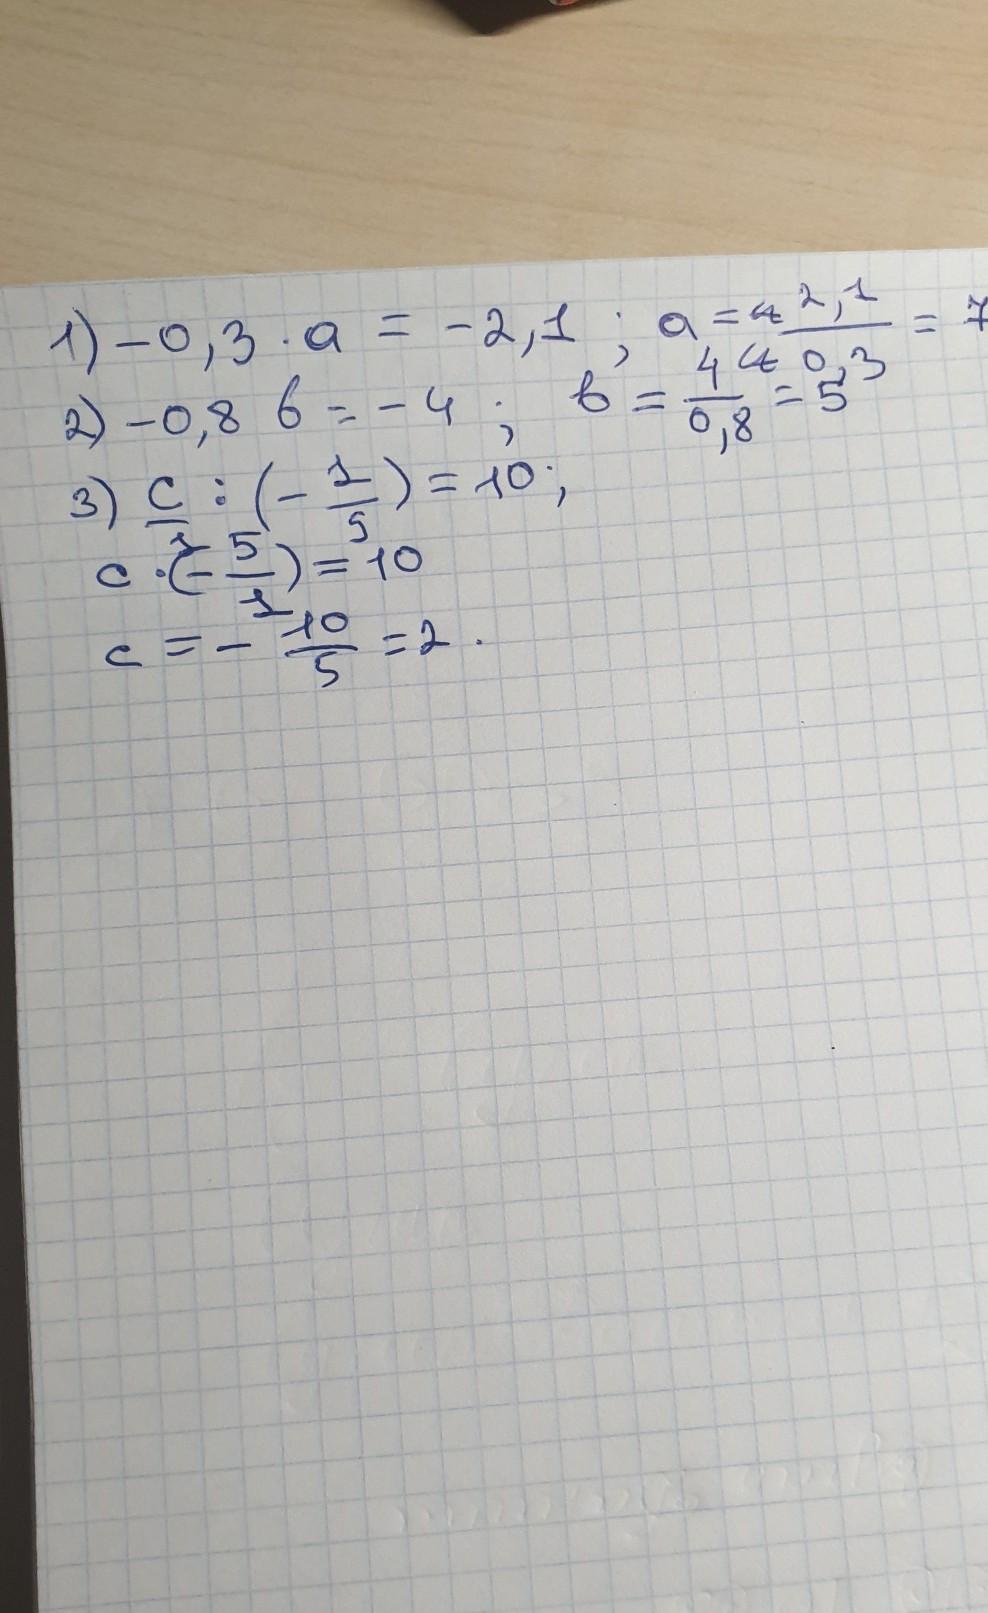 1) -0,3 · a = -2,1 ; a = 2,1/0,3 = 7
2) -0,8 b = -4 ; b = 4/0,8 = 5
3) c/1 : (-1/5) = 10;
c · (-5/1) = 10
c = - 10/5 = 2 .